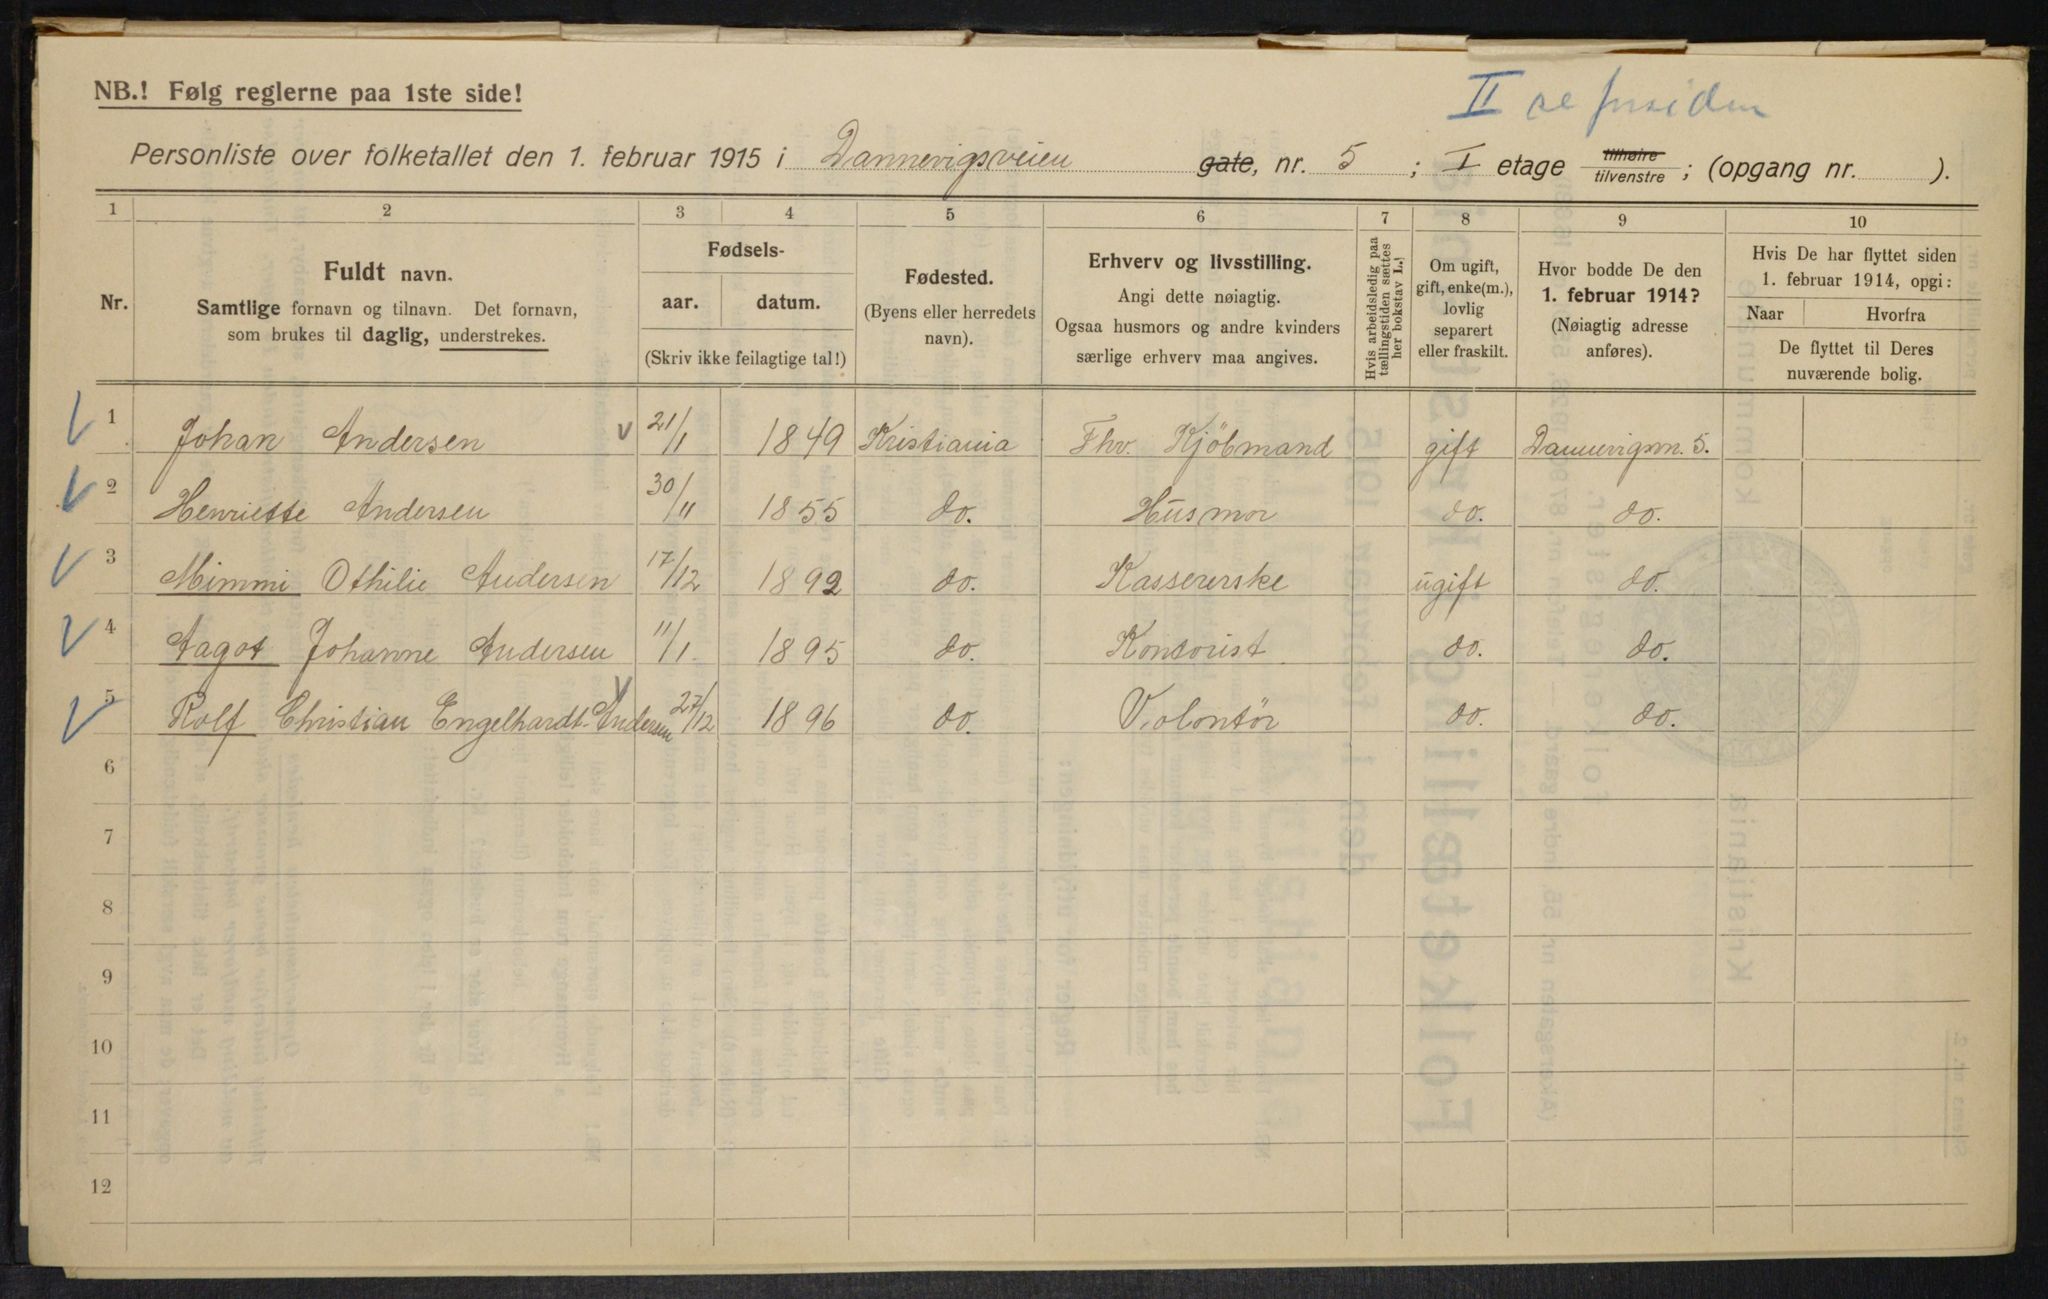 NB.! Følg reglerne paa 1ste side!
II se forsiden
Personliste over folketallet den 1. februar 1915 i Dannevigsveien gate, nr. 5 ; I etage tilhøire tilvenstre ; (opgang nr. ).
1 2 3 4 5 6 7 8 9 10
Nr.
Fuldt navn.
Samtlige fornavn og tilnavn. Det fornavn,
som brukes til daglig, understrekes.
Fødsels-
aar. datum.
(Skriv ikke feilagtige tal!)
Fødested.
(Byens eller herredets
navn).
Erhverv og livsstilling.
Angi dette nøiagtig.
Ogsaa husmors og andre kvinders
særlige erhverv maa angives.
Hvis arbeidsledig paa
tællingstiden sættes
her bokstav L.)
Om ugift,
gift, enke(m.),
lovlig
separert
eller fraskilt.
Hvor bodde De den
1. februar 1914?
(Nøiagtig adresse
anføres).
Hvis De har flyttet siden
1. februar 1914, opgi:
Naar Hvorfra
De flyttet til Deres
nuværende bolig.
1 Johan Andersen 21/1 1849 Kristiania Fhv. Kjöbmand gift Dannevigsvn. 5.
2 Henriette Andersen 30/11 1855 do. Husmor do. do.
3 Mimmi Othilie Andersen 17/12 1892 do. Kassererske ugift do.
4 Aagot Johanne Andersen 11/1 1895 do. Kontorist do. do.
5 Rolf Christian Engelhardt-Andersen 27/12 1896 do. Volontör do. do.
6
7
8
9
10
11
12